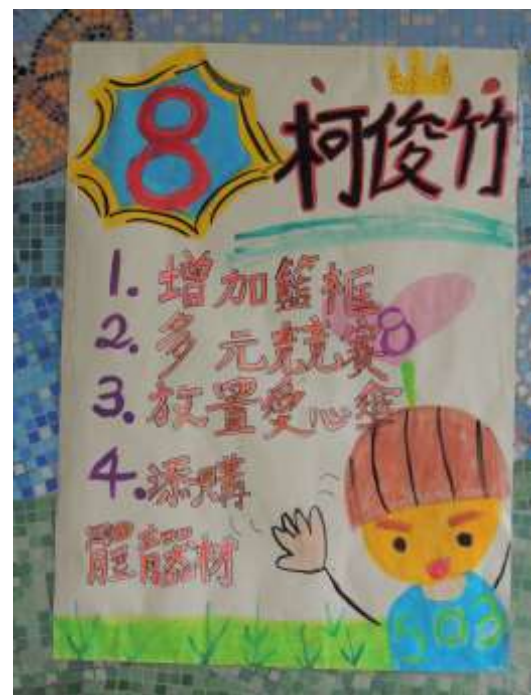 8 柯俊竹
1. 增加籃框
2. 多元競賽
8
3. 放置愛心傘
4. 添購
體育器材
503